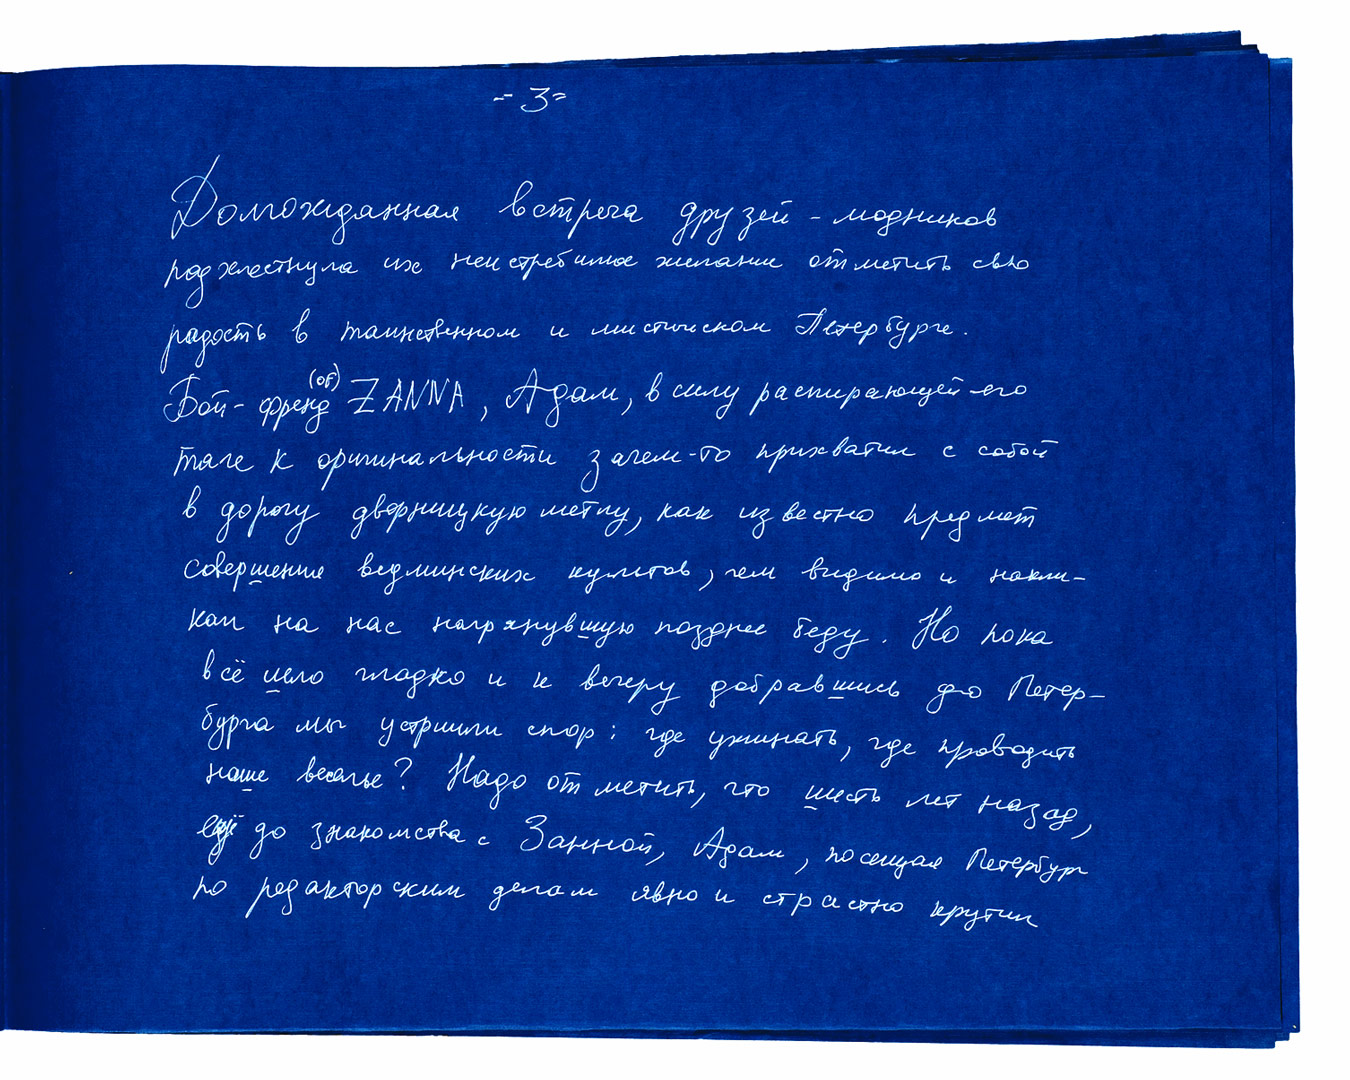 - 3 =
Долгожданная встреча друзей - модников
подхлестнула их неистребимое желание отметить свою
радость в таинственном и мистическом Петербурге.
Бой-френд (of) ZANNA, Адам, в силу распирающей его
тяге к оригинальности зачем-то прихватил с собой
в дорогу дворницкую метлу, как известно предмет
совершения ведминских культов, чем видимо и накли-
кал на нас нагрянувшую позднее беду. Но пока
всё шло гладко и к вечеру добравшись до Петер-
бурга мы устроили спор: где ужинать, где проводить
наше веселье? Надо отметить, что шесть лет назад,
ещё до знакомства с Занной, Адам, посещая Петербург
по редакторским делам явно и страстно крутил